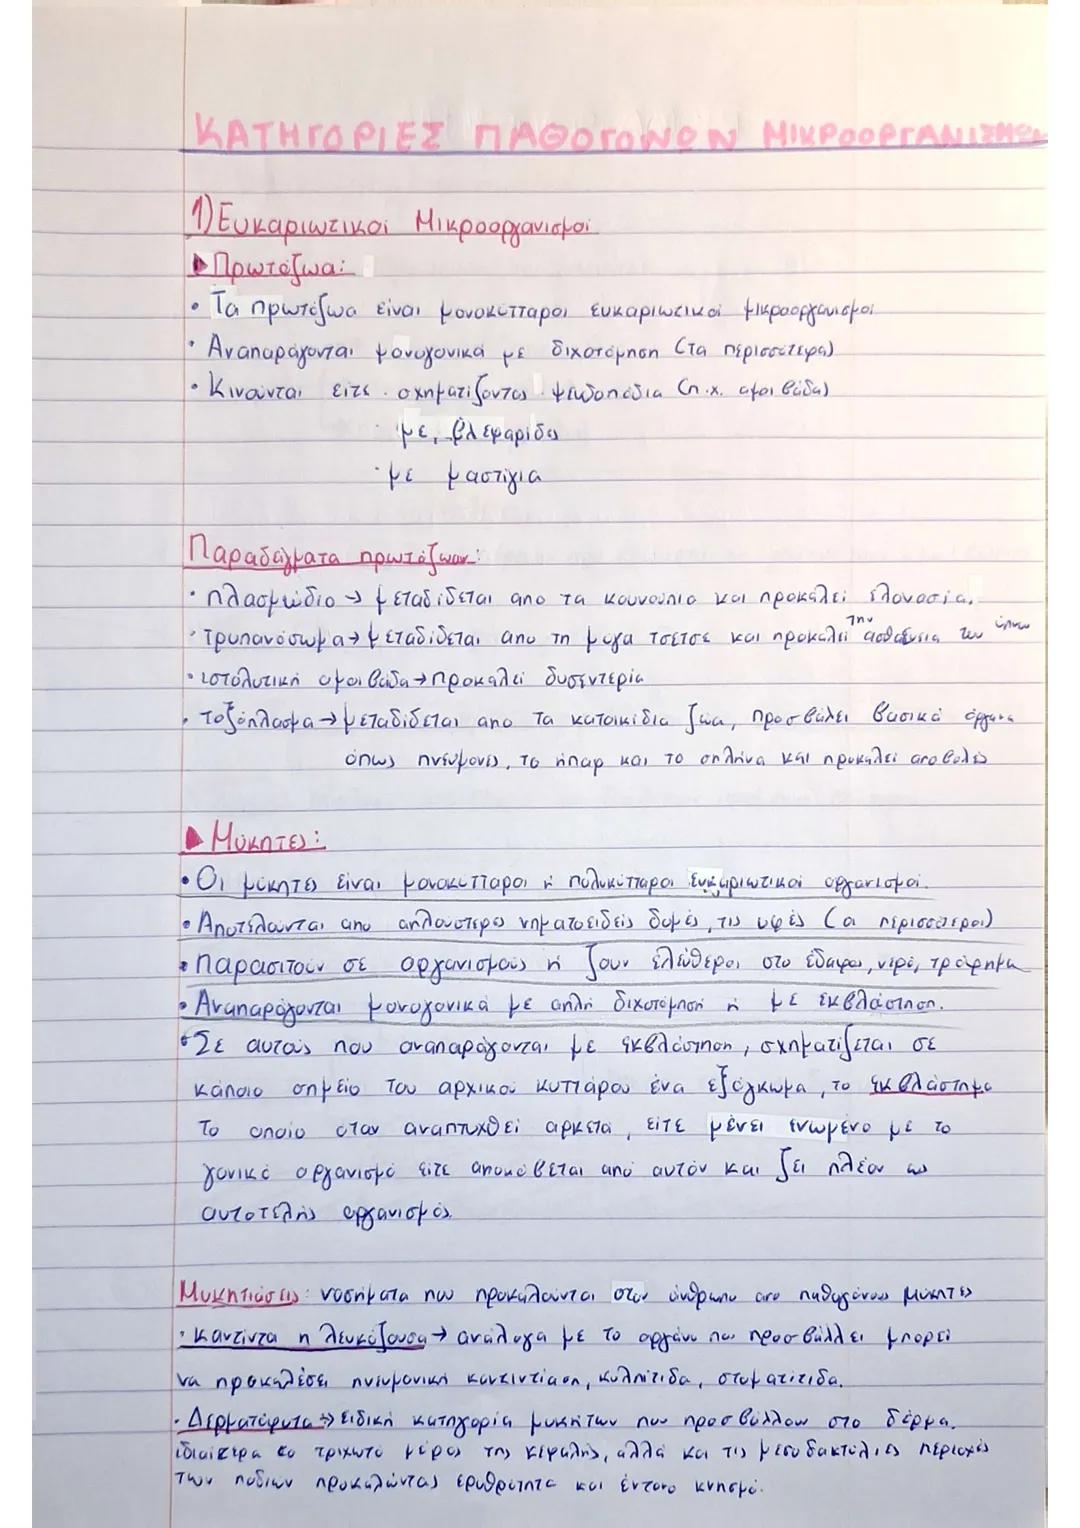 ΚΑΤΗΓΟΡΙΕΣ ΠΑΘΟΓΟΝΩΝ ΜΙΚΡΟΟΡΓΑΝΙΣΜΩΝ
1) Ευκαριωτικοί Μικροοργανισμοί
Πρωτόζωα:
• Τα πρωτόζωα είναι μονοκύτταροι ευκαριωτικοί μικροοργανισμοί
• Αναπαράγονται μονογονικά με διχοτόμηση (τα περισσότερα)
• Κινούνται είτε · σχηματίζοντας ψευδοπόδια (π.χ. αμοιβάδα)
· με βλεφαρίδες
· με μαστίγια
Παραδείγματα πρωτόζωων:
• πλασμώδιο → μεταδίδεται απο τα κουνούπια και προκαλεί ελονοσία.
• Τρυπανόσωμα → μεταδίδεται απο τη μυγα τσετσε και προκαλεί την ασθένεια του ύπνου
• ιστολυτική αμοιβάδα → προκαλεί δυσεντερία
• τοξόπλασμα → μεταδίδεται απο τα κατοικίδια ζώα, προσβάλει βασικά όργανα
όπως πνεύμονες, το ήπαρ και το σπλήνα και προκαλεί αποβολές
Μύκητες:
• Οι μύκητες είναι μονοκύτταροι ή πολυκύτταροι ευκαριωτικοί οργανισμοί.
• Αποτελούνται απο απλούστερες νηματοειδείς δομές, τις υφές (οι περισσότεροι)
• Παρασιτούν σε οργανισμούς ή ζουν ελεύθεροι στο έδαφος, νερό, τρόφημα
• Αναπαράγονται μονογονικά με απλή διχοτόμηση ή με εκβλάστηση.
• Σε αυτούς που αναπαράγονται με εκβλάστηση, σχηματίζεται σε
κάποιο σημείο του αρχικού κυττάρου ένα εξόγκωμα, το εκβλάστημα
το οποίο όταν αναπτυχθεί αρκετά, είτε μένει ενωμένο με το
γονικό οργανισμό είτε αποκόβεται από αυτόν και ζει πλέον ως
αυτοτελής οργανισμός.
Μυκητιάσεις: νοσήματα που προκαλούνται στον άνθρωπο απο παθογόνους μύκητες
• καντίντα η λευκάζουσα → ανάλογα με το οργάνο που προσβάλλει μπορεί
να προκαλέσει πνευμονική καντιντίαση, κολπίτιδα, στοματίτιδα.
• Δερματόφυτα → ειδική κατηγορία μυκήτων που προσβάλλουν στο δέρμα.
ιδιαίτερα το τριχωτό μέρος της κεφαλής, αλλά και τις μεσοδακτύλιες περιοχές
των ποδιών προκαλώντας ερυθρότητα και έντονο κνησμό.